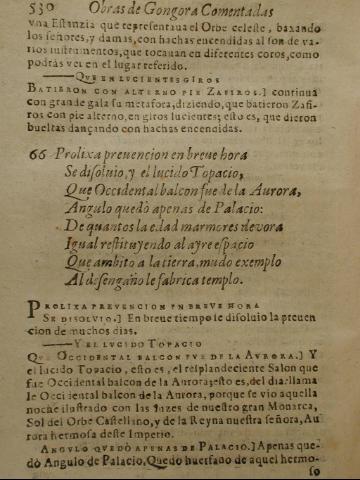 530 Obras de Gongora Comentadas
vna Estanzia que representaua el Orbe celeste, baxando
los señores, y damas, con hachas encendidas al son de va-
rios instrumentos, que tocauan en diferentes coros, como
podràs ver en el lugar referido.
——QVE EN LVCIENTES GIROS
BATIERON CON ALTERNO PIE ZAFIROS.] continua
con grande gala su metafora, diziendo, que batieron Zafi-
ros con pie alterno, en giros lucientes; esto es, que dieron
bueltas dançando con hachas encendidas.
66 Prolixa preuencion en breue hora
Se disoluio, y el lucido Topacio,
Que Occidental balcon fue de la Aurora,
Angulo quedò apenas de Palacio:
De quantos la edad marmores deuora
Igual restituyendo al ayre espacio
Que ambito a la tierra, mudo exemplo
Al desengaño le fabrica templo.
PROLIXA PREVENCION EN BREVE HORA
SE DISOLVIO.] En breue tiempo se disoluio la preuen
cion de muchos dias.
——Y EL LVCIDO TOPACIO
QVE OCCIDENTAL BALCON FVE DE LA AVRORA.] Y
el lucido Topacio, esto es, el resplandeciente Salon que
fue Occidental balcon de la Aurora; esto es, del dia: llama
le Occidental balcon de la Aurora, porque se vio aquella
noche ilustrado con las luzes de nuestro gran Monarca,
Sol del Orbe Castellano, y de la Reyna nuestra señora, Au
rora hermosa deste Imperio.
ANGVLO QVEDÒ APENAS DE PALACIO.] Apenas que-
dò Angulo de Palacio, Quedo huerfano de aquel hermo-
so